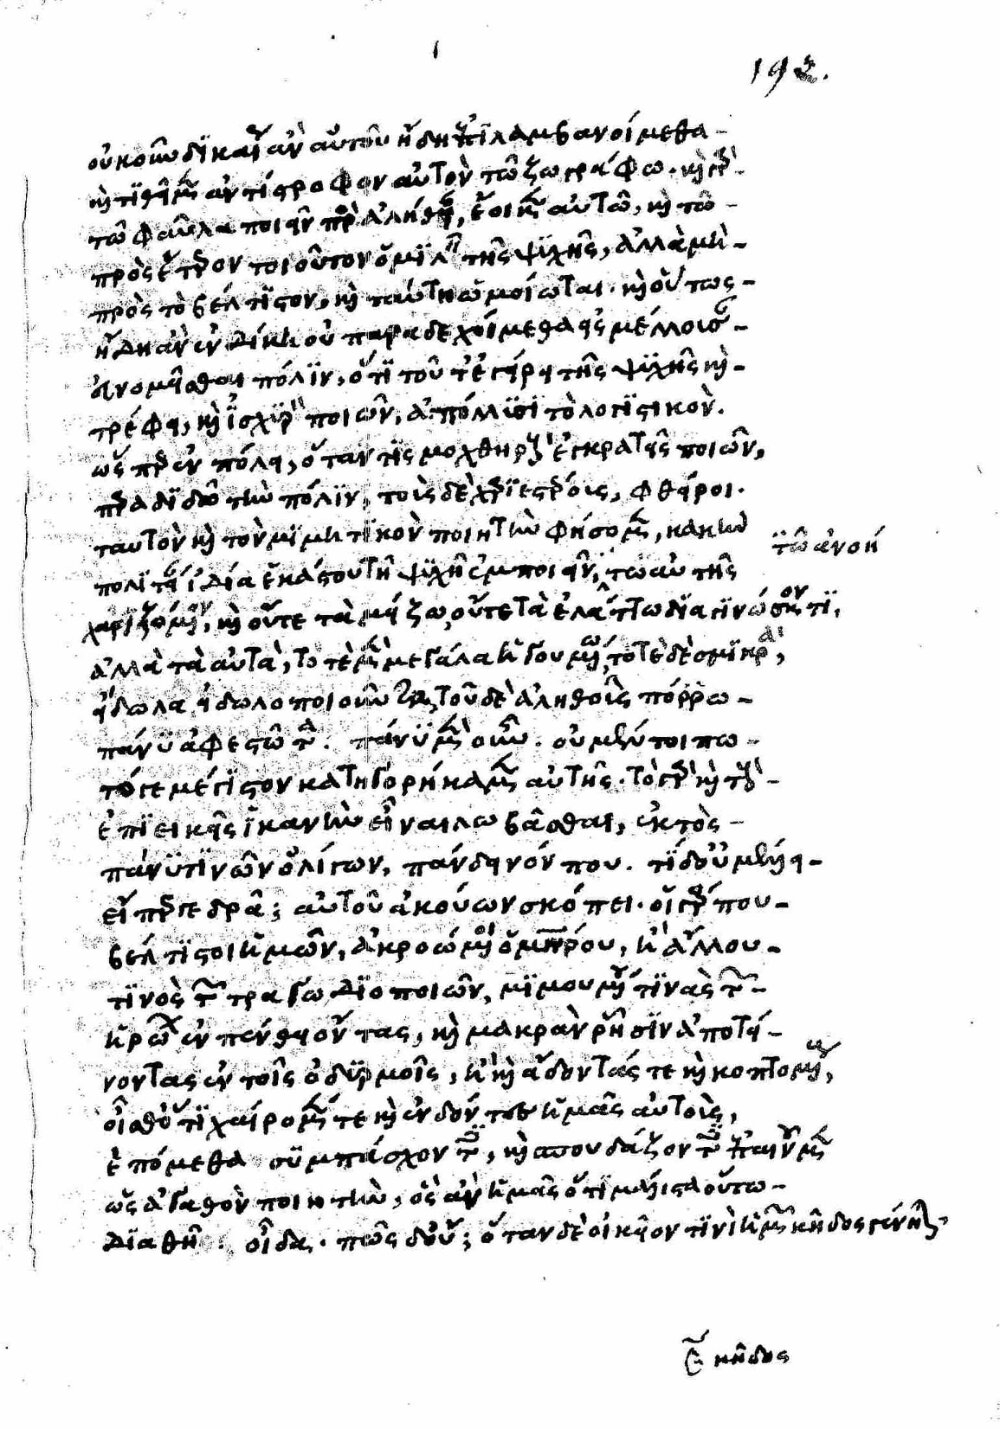 192.
οὐκοῦν δικαίως ἂν αὐτοῦ ἤδη ἐπιλαμβανοίμεθα
καὶ τιθεῖμεν ἀντίστροφον αὐτὸν τῷ ζωγράφῳ. καὶ γὰρ
τῷ φαῦλα ποιεῖν πρὸς ἀλήθειαν, ἔοικεν αὐτῷ, καὶ τῷ
πρὸς ἕτερον τοιοῦτον ὁμιλεῖν τῆς ψυχῆς, ἀλλὰ μὴ
πρὸς τὸ βέλτιστον, καὶ ταύτῃ ὡμοίωται. καὶ οὕτως
ἤδη ἂν ἐν δίκῃ οὐ παραδεχοίμεθα εἰς μέλλουσαν
εὐνομεῖσθαι πόλιν, ὅτι τοῦτο ἐγείρει τῆς ψυχῆς καὶ
τρέφει, καὶ ἰσχυρὸν ποιῶν, ἀπόλλυσι τὸ λογιστικόν.
ὥσπερ ἐν πόλει, ὅταν τις μοχθηροὺς ἐγκρατεῖς ποιῶν,
παραδιδῷ τὴν πόλιν, τοὺς δὲ χαριεστέρους, φθείροι.
ταυτὸν καὶ τὸν μιμητικὸν ποιητὴν φήσομεν, κακὴν
πολιτείαν ἰδίᾳ ἑκάστου τῇ ψυχῇ ἐμποιεῖν, τῷ αὐτῆς
τῷ ἀνοή
χαριζόμενον, καὶ οὔτε τὰ μείζω, οὔτε τὰ ἐλάττω διαγινώσκοντι,
ἀλλὰ τὰ αὐτὰ, τοτὲ μὲν μεγάλα ἡγουμένῳ, τοτὲ δὲ σμικρά,
εἴδωλα εἰδωλοποιοῦντα, τοῦ δὲ ἀληθοῦς πόρρω
πάνυ ἀφεστῶτα. πάνυ μὲν οὖν. οὐ μέντοι πω
τό γε μέγιστον κατηγορήκαμεν αὐτῆς. τὸ γὰρ καὶ τοὺς
ἐπιεικεῖς ἱκανὴν εἶναι λωβᾶσθαι, ἐκτὸς
πάνυ τινῶν ὀλίγων, πάνδεινόν που. τί δ' οὐ μέλλει
εἴπερ γε δρᾷ; αὐτοῦ ἀκούων σκόπει. οἱ γάρ που
βέλτιστοι ἡμῶν, ἀκροώμενοι ὁμήρου, ἢ ἄλλου
τινὸς τῶν τραγῳδιοποιῶν, μιμουμένου τινὰς τῶν
ἡρώων ἐν πένθει ὄντας, καὶ μακρὰν ῥῆσιν ἀποτεί
νοντας ἐν τοῖς ὀδυρμοῖς, ἢ καὶ ᾄδοντάς τε καὶ κοπτομένους,
οἶσθ' ὅτι χαίρομέν τε καὶ ἐνδόντες ἡμᾶς αὐτοὺς,
ἑπόμεθα συμπάσχοντες, καὶ σπουδάζοντες ἐπαινοῦμεν
ὡς ἀγαθὸν ποιητὴν, ὃς ἂν ἡμᾶς ὅτι μάλιστα οὕτω
διαθῇ. οἶδα. πῶς δ' οὔ; ὅταν δὲ οἰκεῖόν τινι ἡμῶν κῆδος γένηται
κῆδος